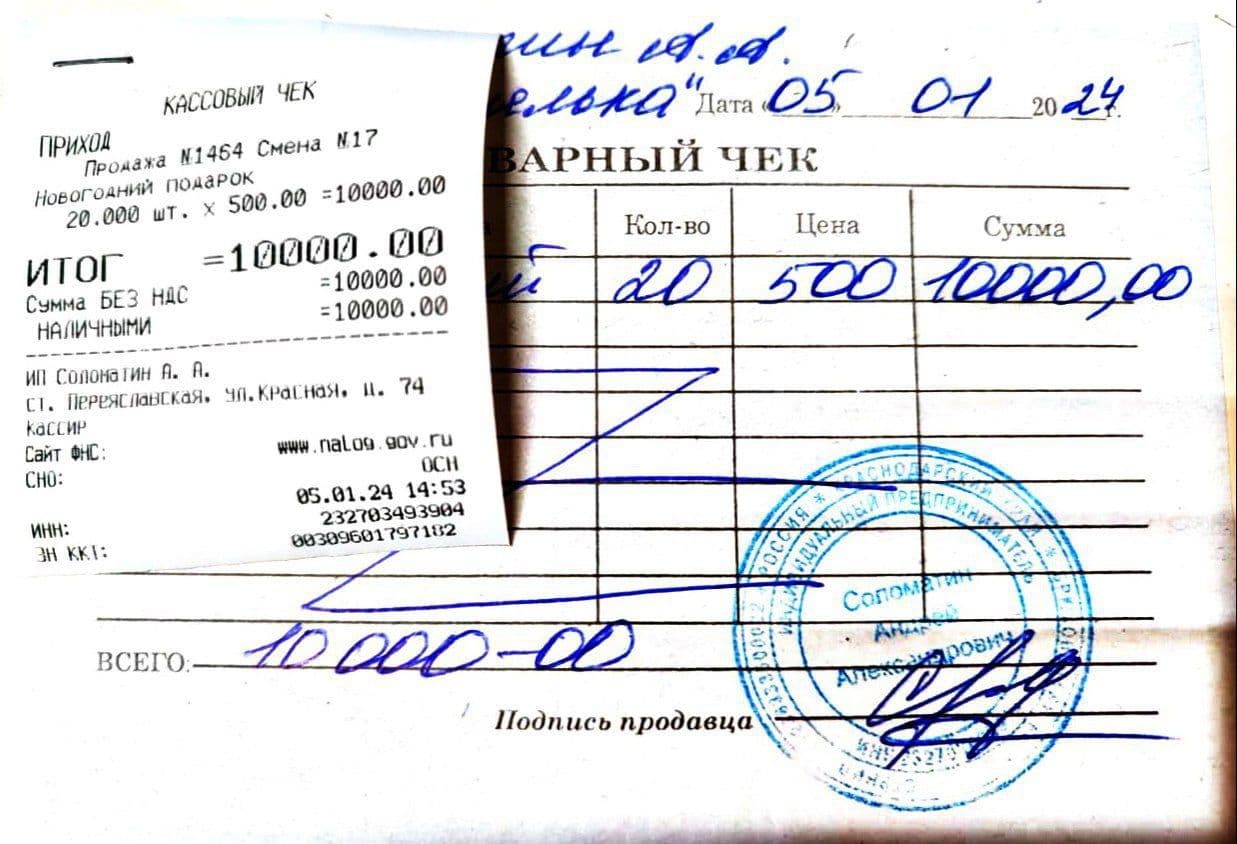 КАССОВЫЙ ЧЕК
ПРИХОД
Продажа №1464 Смена №17
Новогодний подарок
20.000 шт. x 500.00 =10000.00
ИТОГ =10000.00
Сумма БЕЗ НДС =10000.00
НАЛИЧНЫМИ =10000.00
ИП Соломатин А. А.
ст. Переясловская, ул.Красная, д. 74
Кассир
Сайт ФНС: www.nalog.gov.ru
СНО: ОСН
05.01.24 14:53
ИНН: 232703493904
ЗН ККТ: 00309601797182
А.А.
Дата «05» 01 2024г.
ВАРНЫЙ ЧЕК
Кол-во Цена Сумма
ий 20 500 10000,00
ВСЕГО: 10 000-00
Подпись продавца
РОССИЯ * КРАСНОДАРСКИЙ КРАЙ *
ИНДИВИДУАЛЬНЫЙ ПРЕДПРИНИМАТЕЛЬ
Соломатин
Андрей
Александрович